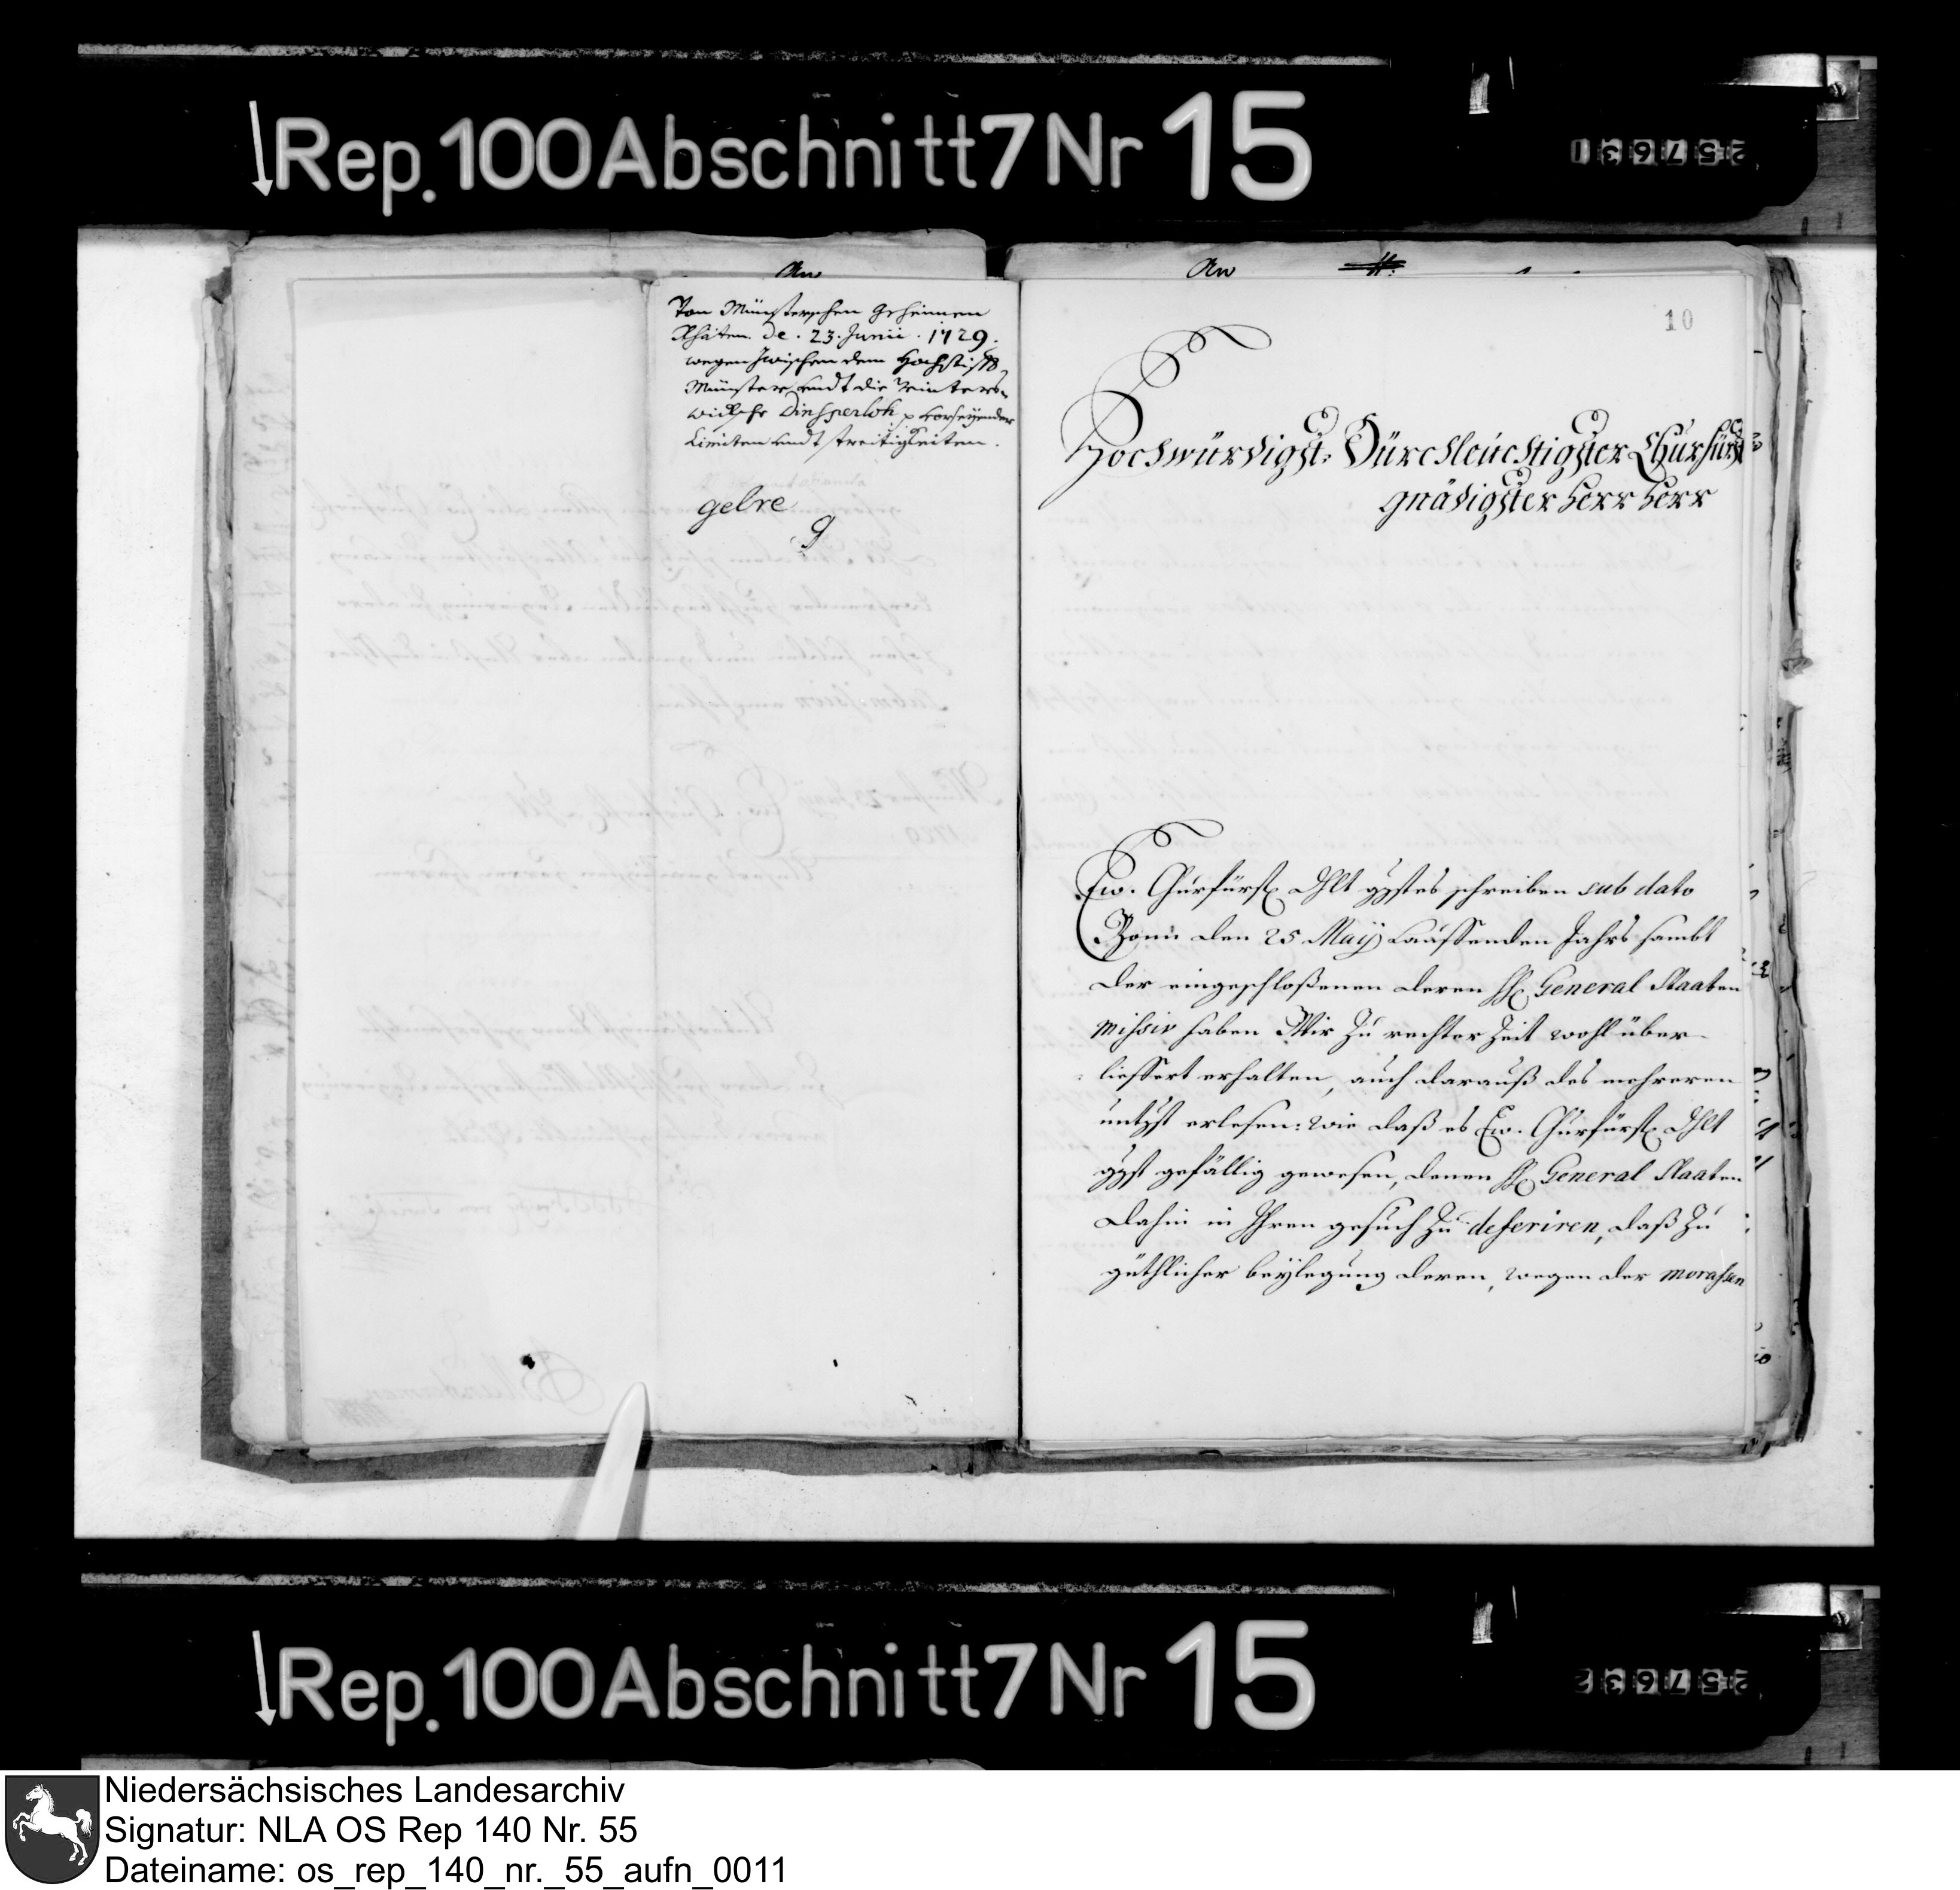 Rep. 100 Abschnitt 7 Nr 15
257631
Von Münsterschen Geheimen
Rhäten. de. 23. Junii. 1729.
wegen zwischen dem Hochstifft
Münster undt die Winters-
wicksche Dinsperloh p vorseyender
Limiten undt streitigkeiten.
gelre
9
10
Hochwürdigst- Dürchleüchtigster Churfürst
gnädigster Herr Herr
Ew. Churfürstl. Dhlt ggstes schreiben sub dato
Bonn den 25 Maÿ Lauffenden Jahrs sambt
der eingeschloßenen deren HH. General Staaten
missiv haben Wir zu rechter Zeit wohl über-
lieffert erhalten, auch darauß des mehreren
untgst erlesen: wie daß es Ew. Churfürstl. Dhlt
ggst gefällig gewesen, denen HH. General Staaten
dahin in Ihren gesuch zu deferiren, daß zu
güthlicher beÿlegung deren, wegen der morassen
Rep. 100 Abschnitt 7 Nr 15
257632
Niedersächsisches Landesarchiv
Signatur: NLA OS Rep 140 Nr. 55
Dateiname: os_rep_140_nr._55_aufn_0011